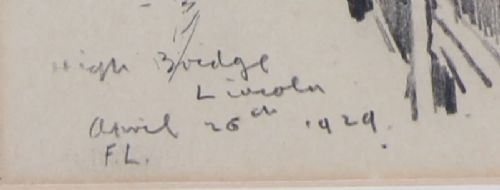 High Bridge
Lincoln
April 26th 1929.
F.L.